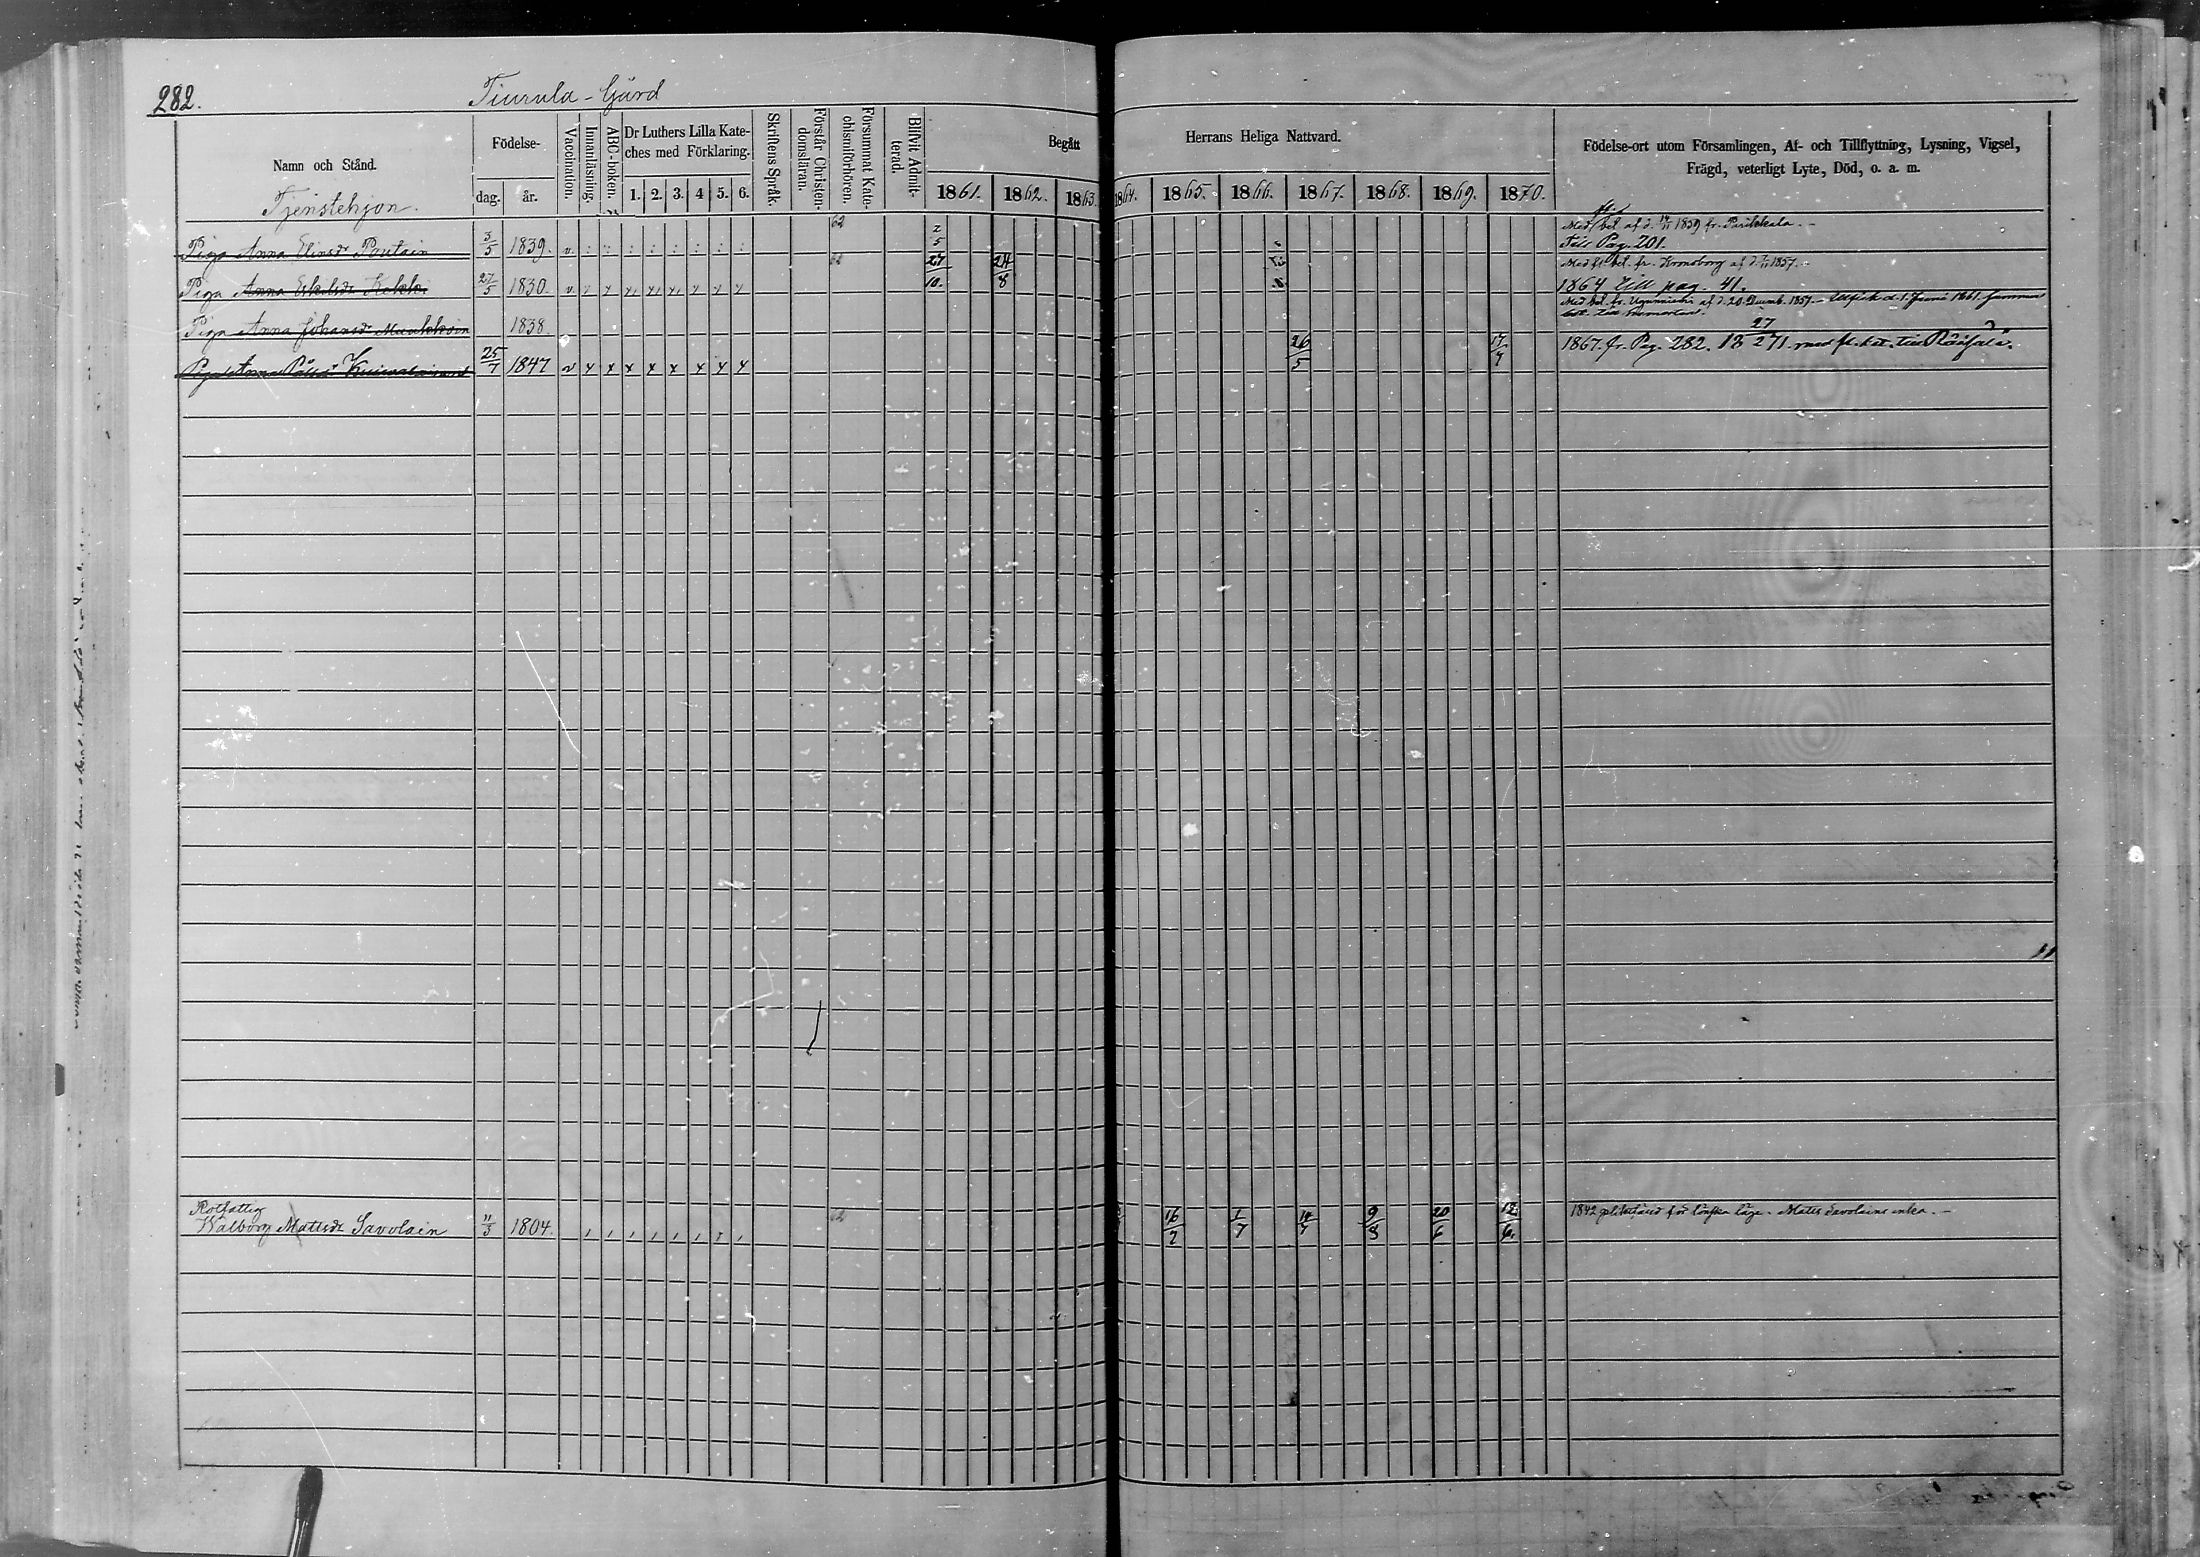 282.
Tiurula-Gård
Namn och Stånd.
Födelse-
dag. år.
Vaccination.
Innanläsning.
ABC-boken.
Dr Luthers Lilla Kate-
ches med Förklaring.
1. 2. 3. 4 5. 6.
Skriftens Språk.
Förstår Christen-
domsläran.
Försummat Kate-
chismiförhören.
Blifvit Admit-
terad.
Begått Herrans Heliga Nattvard.
1861. 1862. 1863. 1864. 1865. 1866. 1867. 1868. 1869. 1870.
Födelse-ort utom Församlingen, Af- och Tillflyttning, Lysning, Vigsel,
Frägd, veterligt Lyte, Död, o. a. m.
Tjenstehjon.
62 2 Med bet. af d. 1859 fr. Parikkala.
Piga Anna Elinsdr Poutain 3/5 1839. v. 5 Till Pag. 201.
62 27 24 Med fl. bet. fr. Kronoborg af d. 1857.
Piga Anna Eskilsdr Kokki 27/5 1830. v. 10. 8 1864 till pag. 41.
Med bet. fr. af d. 20 Decemb. 1857. d. 1. Junii 1861.
Piga Anna Johansdr 1838.
25/7 1847 v 26/5 17/7 1867. fr. Pag. 282. 18 27/2 71. med fl. bet. till Räisälä.
Piga Anna Pålsdr
Rotfattig
Walborg Mattsdr Savolain 11/3 1804. 62 16/7 1/7 14/7 9/8 20/6 12/6. 1842 för läge. Matts Savolains enka.